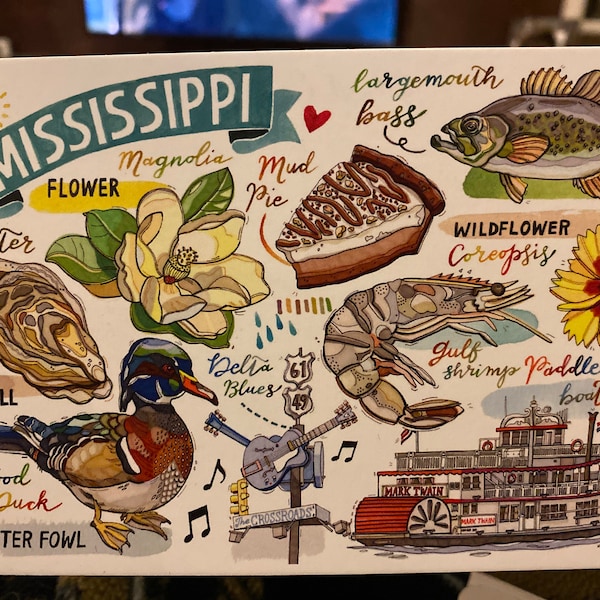 MISSISSIPPI
largemouth
bass
Magnolia
FLOWER
Mud
Pie
WILDFLOWER
Coreopsis
Delta
Blues
61
49
gulf
shrimp
Paddle
boat
The CROSSROADS
MARK TWAIN
MARK TWAIN
Duck